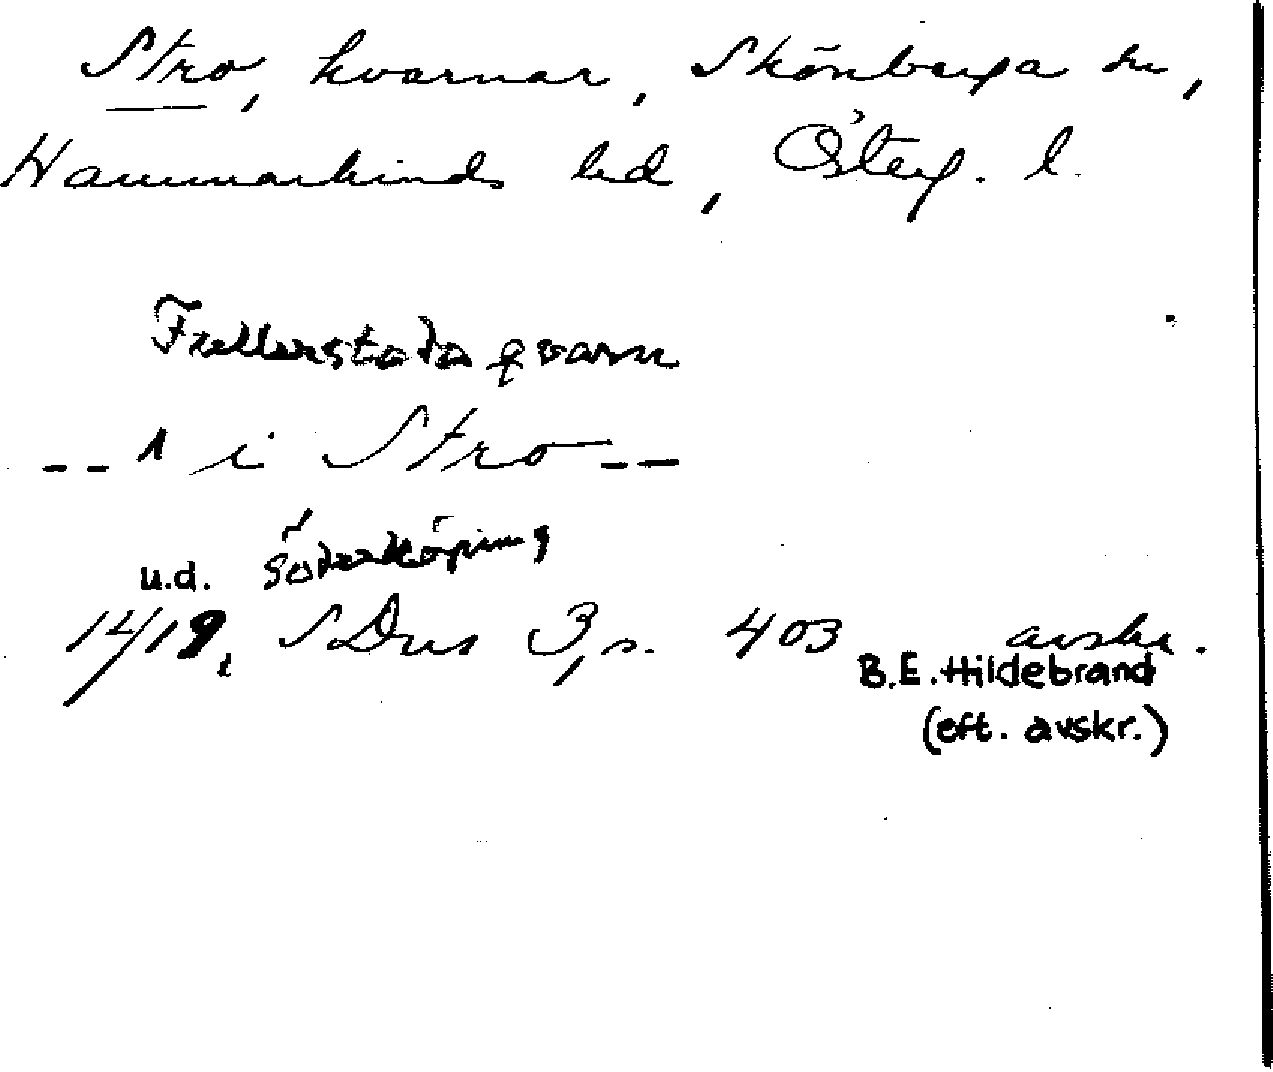 Stro, kvarnar, Skönberga sn,
Hammarkinds hd, Österg. l.
Fillerstada qvarn
-- ^ i Stro --
u.d. Söderköping
1419, SDns 3, s. 403 avskr.
B.E. Hildebrand
(eft. avskr.)